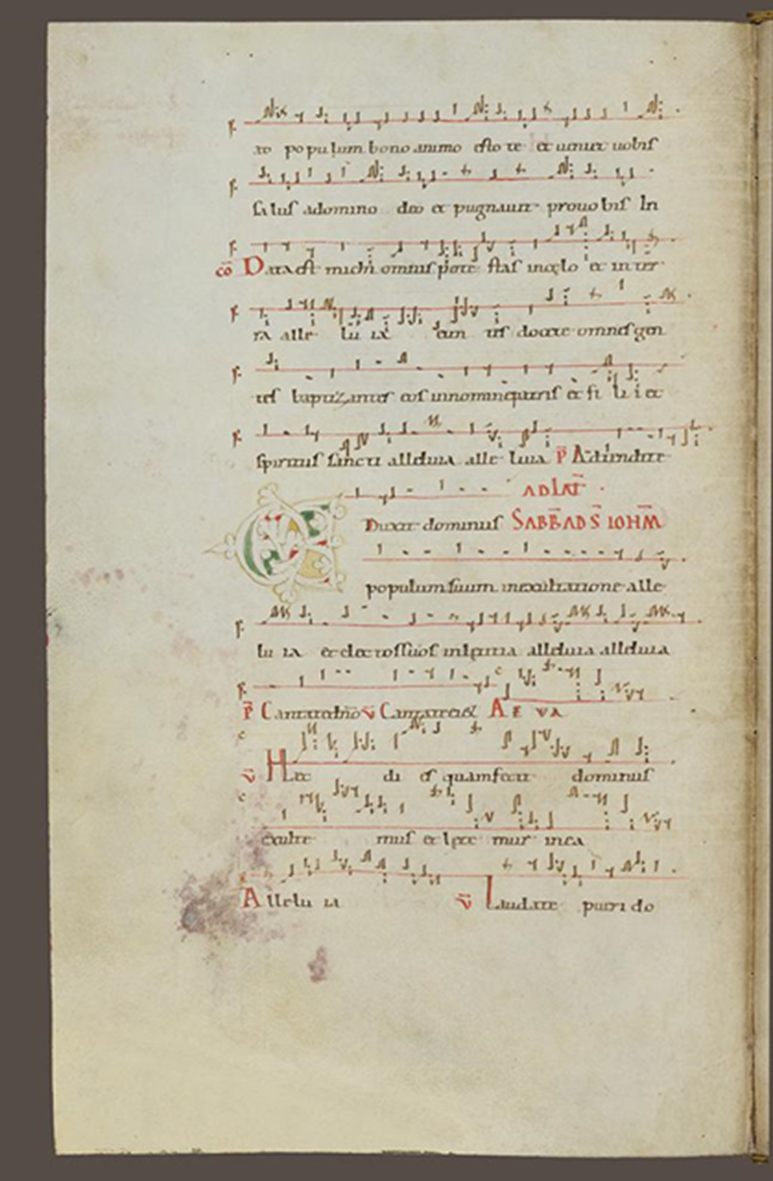 ro populum bono animo estote et ueniet uobis
salus adomino deo et pugnauit prouobis In
co Data est michi omnis potestas incelo et inter
ra alle lu ia eun tes docete omnes gen
tes baptizantes eos innomine patris et fi li i et
spiritus sancti alleluia alle luia p Adtendite
AD LAT
Eduxit dominus SABB AD S IOHM
populum suum inexultatione alle
lu ia et electos suos inletitia alleluia alleluia
p Cantate dno v Cantate ei A E VA
v Hec di es quam fecit dominus
exulte mus et lete mur inea
Allelu ia v Laudate pueri do